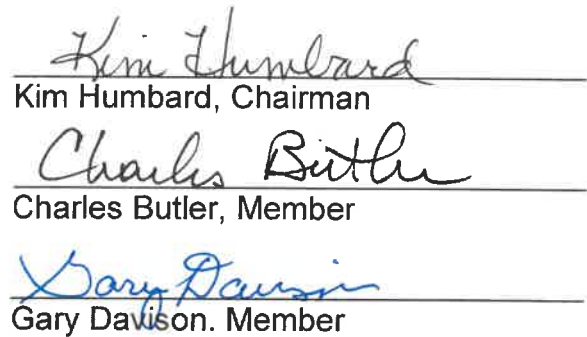 Kim Humbard
Kim Humbard, Chairman
Charles Butler
Charles Butler, Member
Gary Davison
Gary Davison. Member